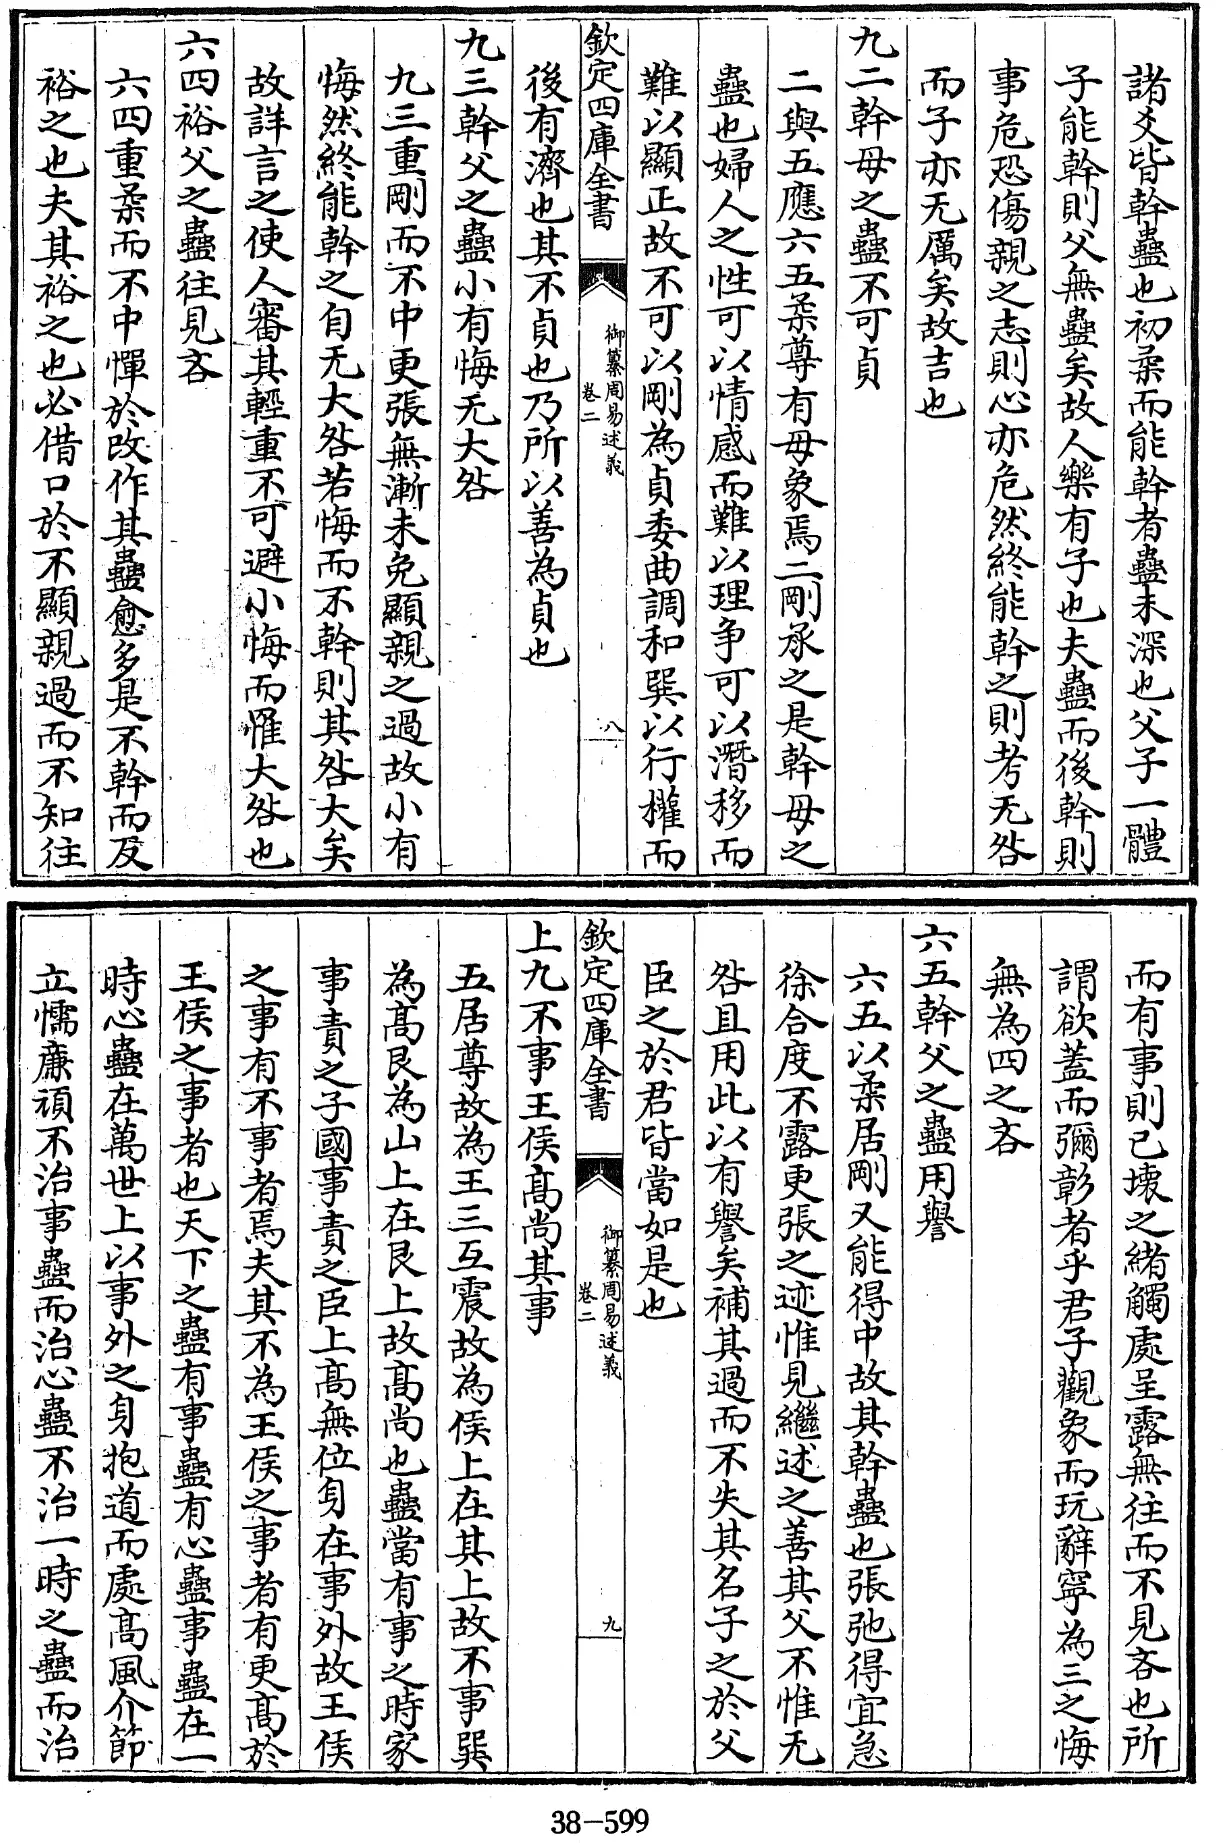 諸爻皆幹蠱也初柔而能幹者蠱未深也父子一體
子能幹則父無蠱矣故人樂有子也夫蠱而後幹則
事危恐傷親之志則心亦危然終能幹之則考无咎
而子亦无厲矣故吉也
九二幹母之蠱不可貞
二與五應六五柔尊有母象焉二剛承之是幹母之
蠱也婦人之性可以情感而難以理爭可以潛移而
難以顯正故不可以剛為貞委曲調和巽以行權而
欽定四庫全書
御纂周易述義
卷二
八
後有濟也其不貞也乃所以善為貞也
九三幹父之蠱小有悔无大咎
九三重剛而不中更張無漸未免顯親之過故小有
悔然終能幹之自无大咎若悔而不幹則其咎大矣
故詳言之使人審其輕重不可避小悔而罹大咎也
六四裕父之蠱往見吝
六四重柔而不中憚於改作其蠱愈多是不幹而反
裕之也夫其裕之也必借口於不顯親過而不知往
而有事則已壞之緒觸處呈露無往而不見吝也所
謂欲蓋而彌彰者乎君子觀象而玩辭寧為三之悔
無為四之吝
六五幹父之蠱用譽
六五以柔居剛又能得中故其幹蠱也張弛得宜急
徐合度不露更張之迹惟見繼述之善其父不惟无
咎且用此以有譽矣補其過而不失其名子之於父
臣之於君皆當如是也
欽定四庫全書
御纂周易述義
卷二
九
上九不事王侯高尚其事
五居尊故為王三互震故為侯上在其上故不事巽
為高艮為山上在艮上故高尚也蠱當有事之時家
事責之子國事責之臣上高無位身在事外故王侯
之事有不事者焉夫其不為王侯之事者有更高於
王侯之事者也天下之蠱有事蠱有心蠱事蠱在一
時心蠱在萬世上以事外之身抱道而處高風介節
立懦廉頑不治事蠱而治心蠱不治一時之蠱而治
38-599